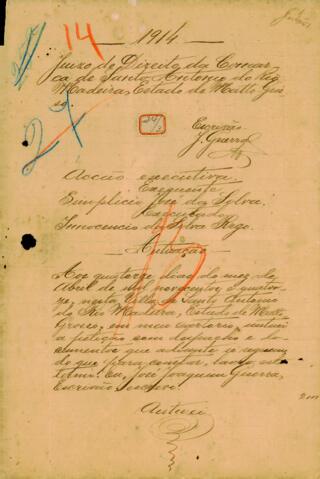 14
1914
Juizo de Direito da Comar-
ca de Santo Antonio do Rio
Madeira, Estado de Matto Gros-
so
Escrivão
J. Guerra
Acção executiva.
Exequente
Simplicio José da Silva.
Executado
Innocencio da Silva Rego.
Autuação
Aos quatorze dias do mez de
Abril de mil novecentos e quator-
ze, nesta Villa de Santo Antonio
do Rio Madeira, Estado de Matto
Grosso, em meu cartorio, autuei
a petição com despacho e do-
cumentos que adiante se seguem;
do que para constar, lavro este
termo. Eu, José Joaquim Guerra,
Escrivão, escrevi.
Autuei